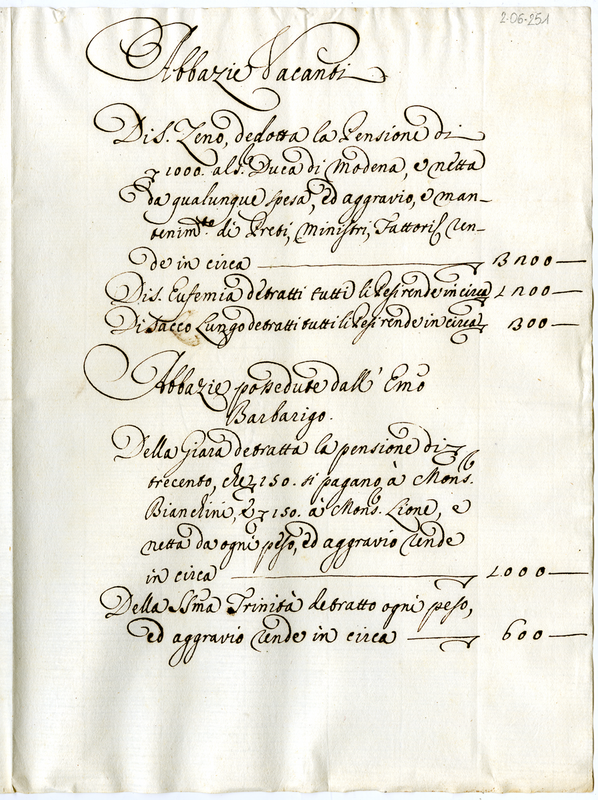 2-06-251
Abbazie Vacanti
Di S. Zeno, dedotta la Pensione di
1000. al S. Duca di Modena, e netta
da qualunque spesa, ed aggravio, e man-
tenim.te di Preti, Ministri, Fattori, ren-
de in circa 3200
Di S. Eufemia detratti tutti li Pesi rende in circa 1200
Di Sacco Lungo detratti tutti li Pesi rende in circa 300
Abbazie possedute dall' Emo
Barbarigo.
Della Giara detratta la pensione di
trecento, che 150. si pagano à Mons.
Bianchini, e 150. à Mons. Lione, e
netta da ogni peso, ed aggravio rende
in circa 1000
Della SSma Trinità detratto ogni peso,
ed aggravio rende in circa 600